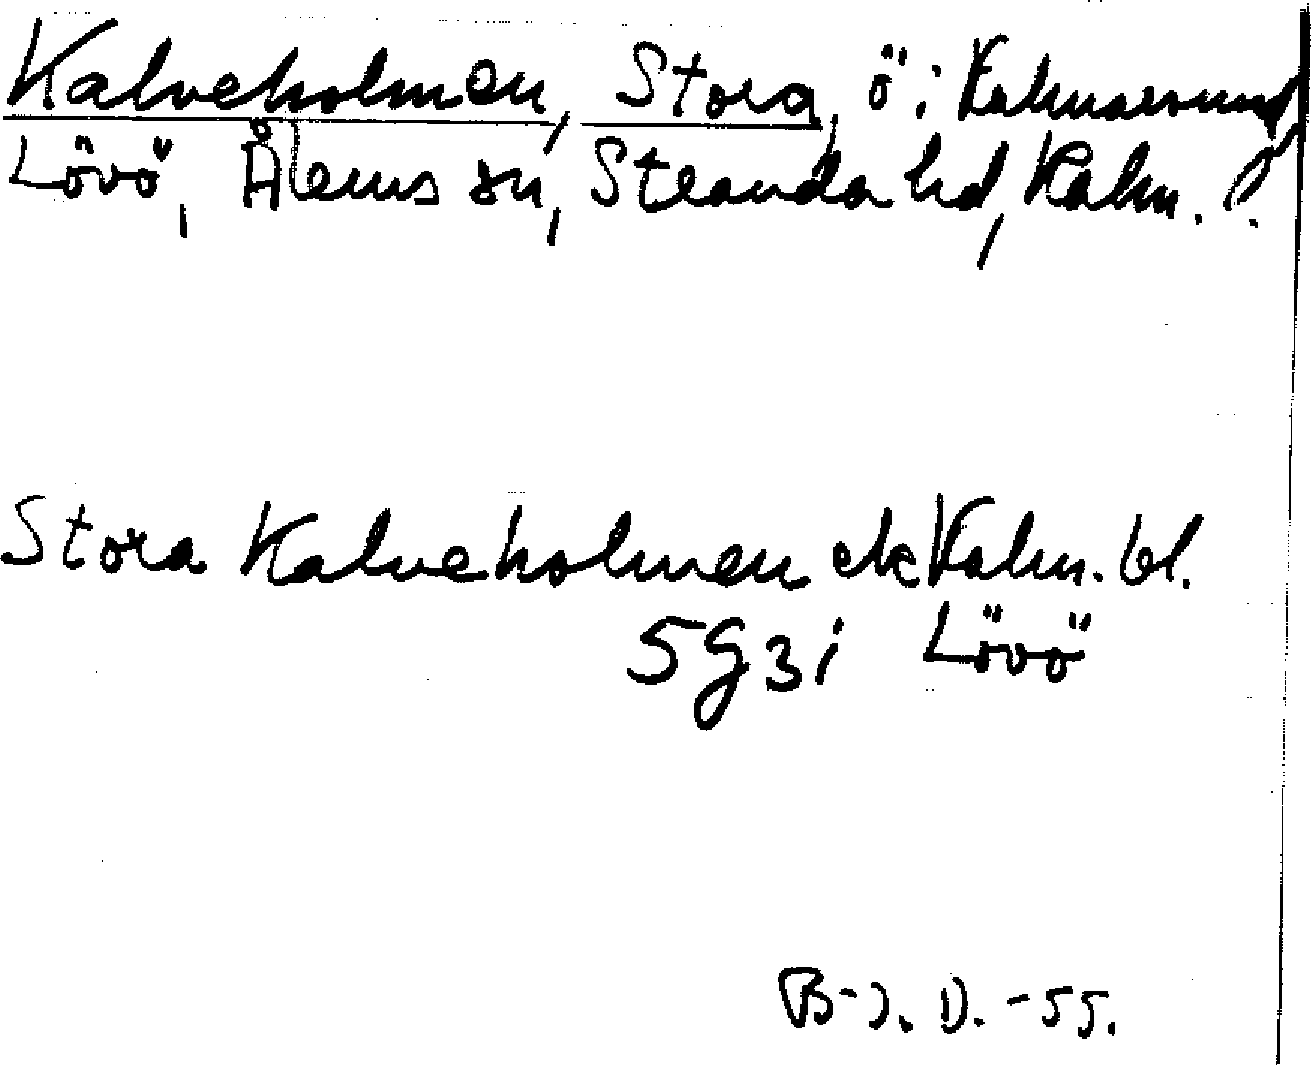 Kalveholmen, Stora, ö i Kalmarsund,
Lövö, Ålems sn, Stranda hd, Kalm. l.
Stora Kalveholmen ek Kalm. bl.
5g3i Lövö
B-J. D. -55.